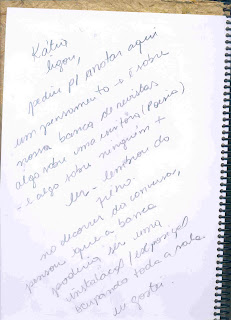 Kátia
ligou,
pediu p/ anotar aqui
um pensamento → é sobre
nossa banca de revistas
algo sobre uma escritora (Poesia)
- e algo sobre ninguém +
ler - lembrou do
filho.
no decorrer da conversa,
pensou que a banca
poderia ser uma
instalação/
ocupando toda a sala.
eu gostei